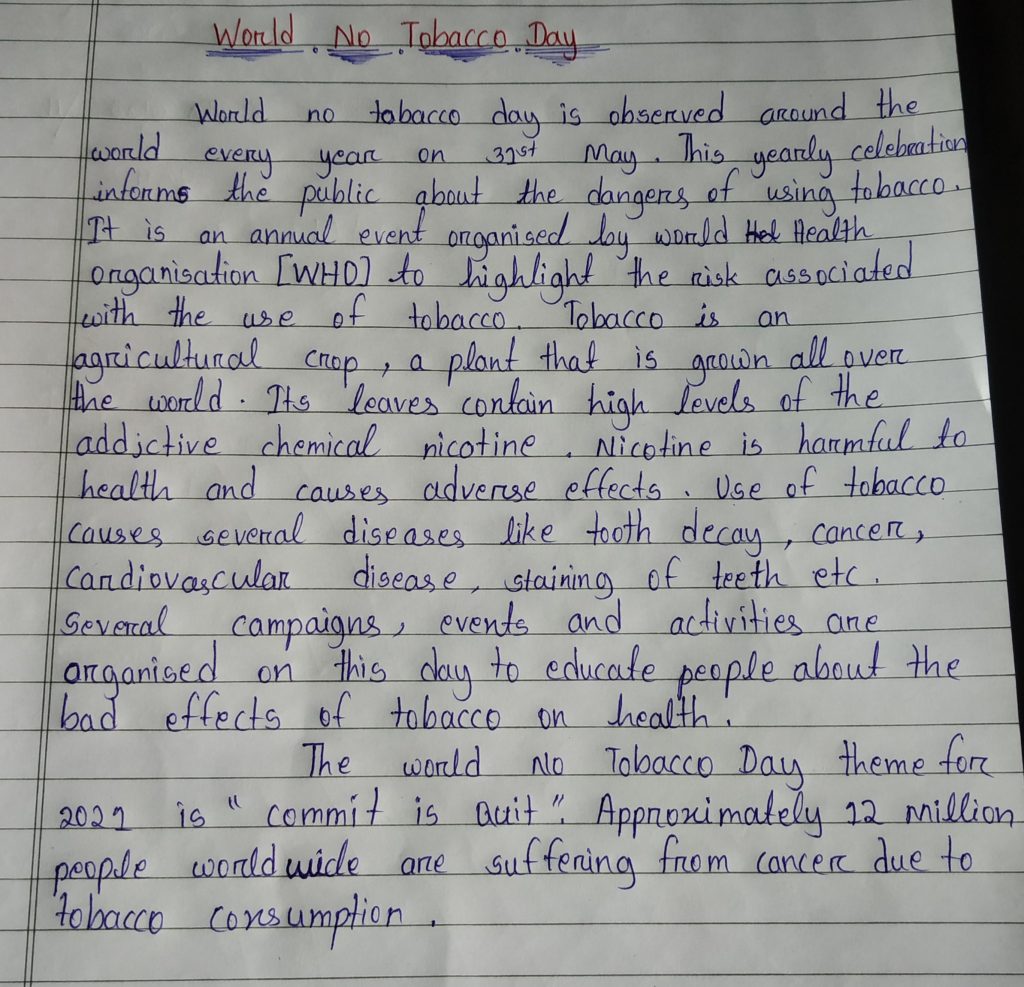 World No Tobacco Day
World no tobacco day is observed around the
world every year on 31st May. This yearly celebration
informs the public about the dangers of using tobacco.
It is an annual event organised by world Health
organisation [WHO] to highlight the risk associated
with the use of tobacco. Tobacco is an
agricultural crop, a plant that is grown all over
the world. Its leaves contain high levels of the
addictive chemical nicotine. Nicotine is harmful to
health and causes adverse effects. Use of tobacco
causes several diseases like tooth decay, cancer,
cardiovascular disease, staining of teeth etc.
Several campaigns, events and activities are
organised on this day to educate people about the
bad effects of tobacco on health.
The world No Tobacco Day theme for
2021 is "commit is Quit". Approximately 12 million
people worldwide are suffering from cancer due to
tobacco consumption.